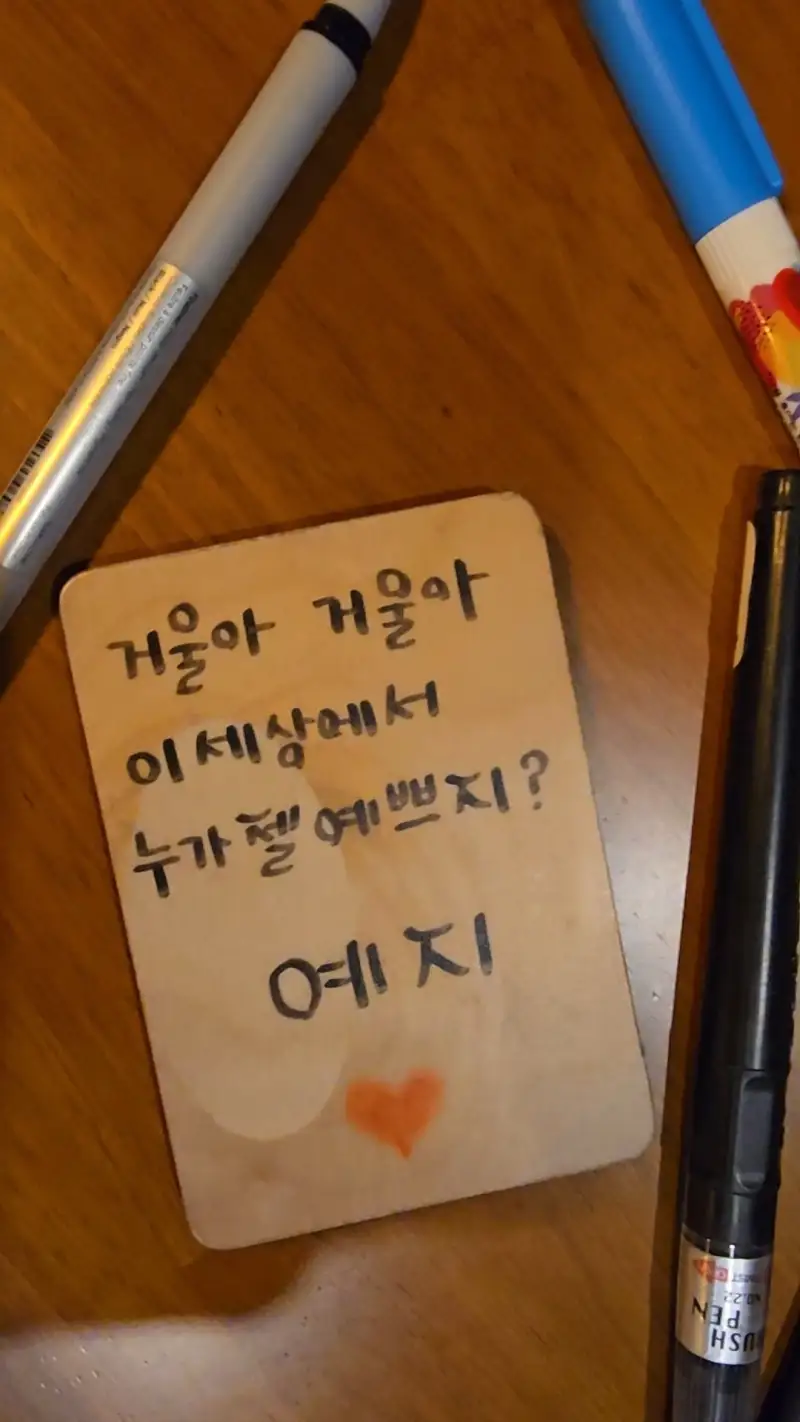 거울아 거울아
이 세상에서
누가 젤 예쁘지?
예지
BRUSH
PEN
NO.22